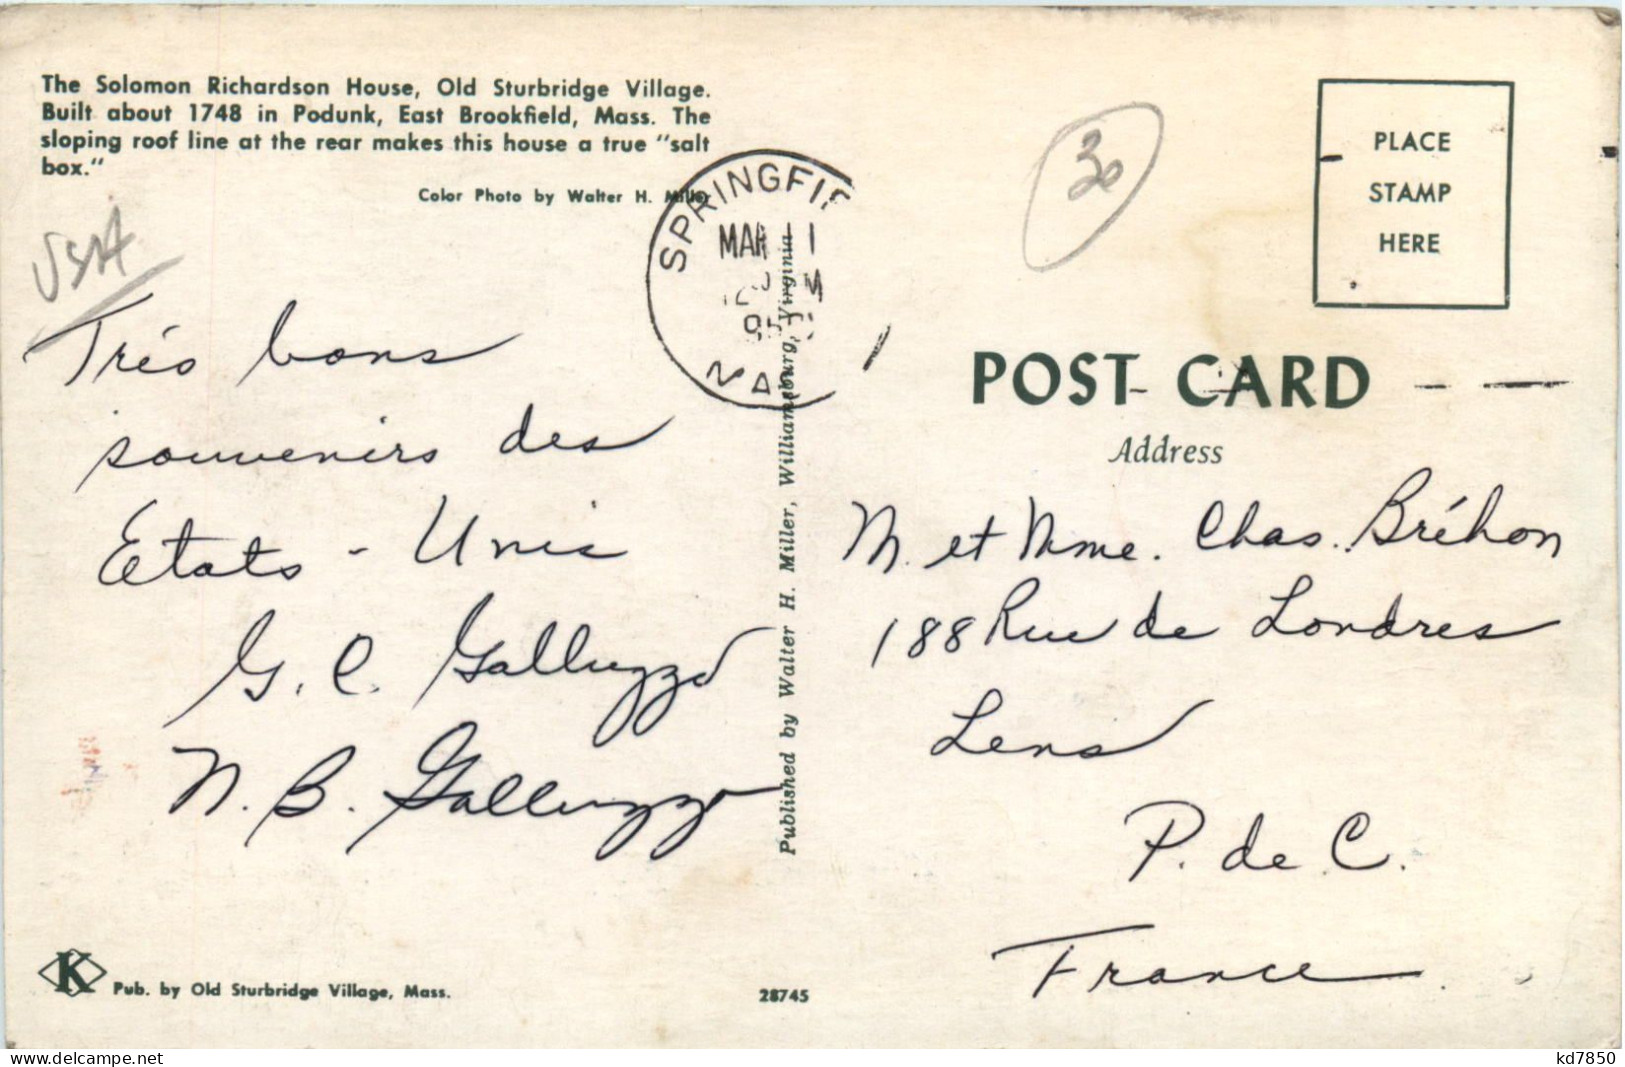 The Solomon Richardson House, Old Sturbridge Village.
Built about 1748 in Podunk, East Brookfield, Mass. The
sloping roof line at the rear makes this house a true "salt
box."
Color Photo by Walter H. Miller
USA
SPRINGFIE
MAR 11
MA
30
PLACE
STAMP
HERE
POST CARD
Address
Trés bons
souvenirs des
Etats - Unis
G. C. Galluzzo
N. B. Galluzzo
Published by Walter H. Miller, Williamsburg, Virginia
M. et Mme. Chas. Bréhon
188 Rue de Londres
Lens
P. de C.
France
K
Pub. by Old Sturbridge Village, Mass.
28745
delcampe.net
kd7850